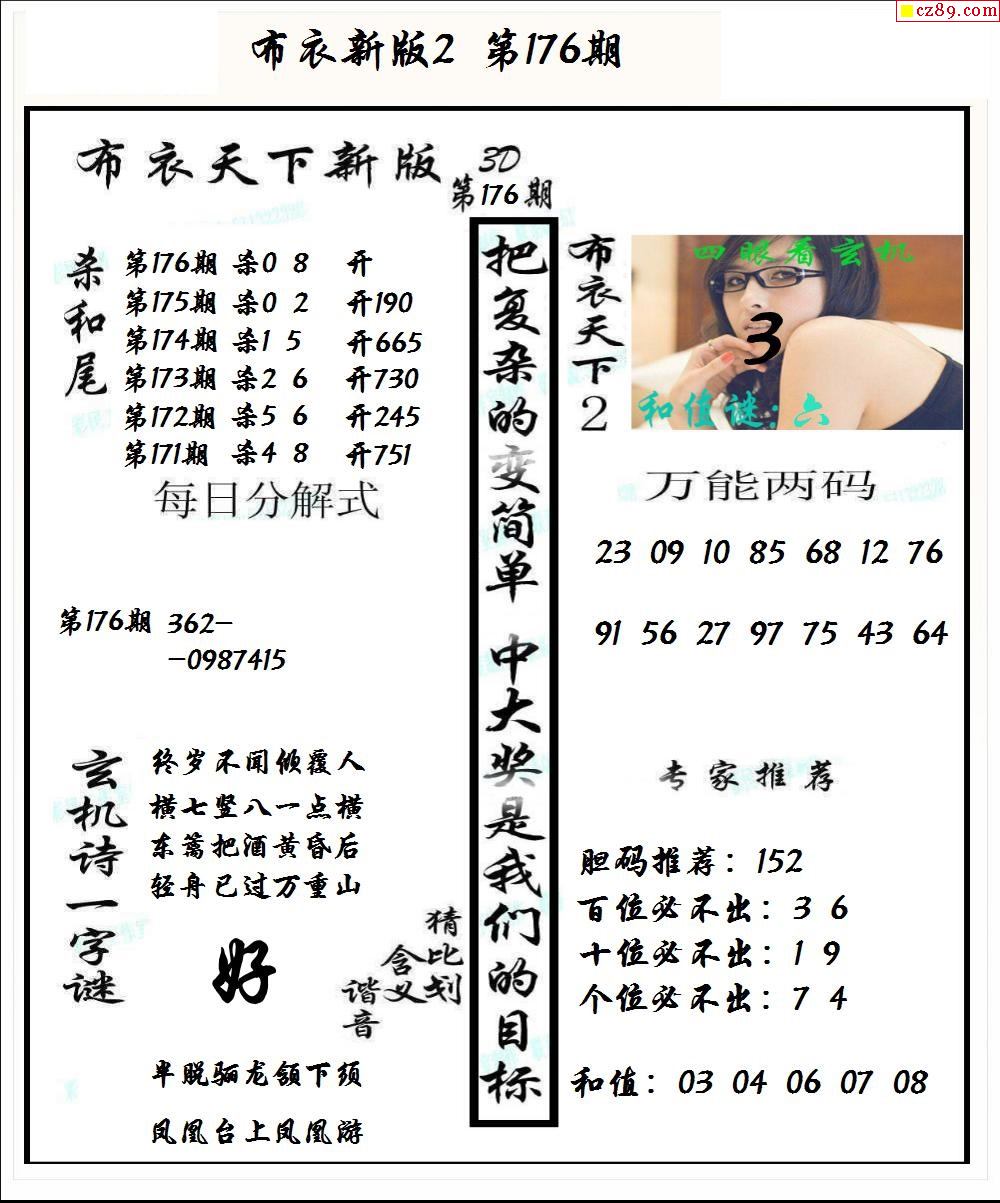 cz89.com
布衣新版2 第176期
布衣天下新版 3D
第176期
杀和尾
第176期 杀0 8 开
第175期 杀0 2 开190
第174期 杀1 5 开665
第173期 杀2 6 开730
第172期 杀5 6 开245
第171期 杀4 8 开751
每日分解式
第176期 362-
-0987415
玄机诗一字谜
终岁不闻倾覆人
横七竖八一点横
东篱把酒黄昏后
轻舟已过万重山
好
猜比划
含义
谐音
半脱骊龙颔下须
凤凰台上凤凰游
把复杂的变简单 中大奖是我们的目标
布衣天下2
四眼看玄机
3
和值谜:六
万能两码
23 09 10 85 68 12 76
91 56 27 97 75 43 64
专家推荐
胆码推荐：152
百位必不出：3 6
十位必不出：1 9
个位必不出：7 4
和值：03 04 06 07 08